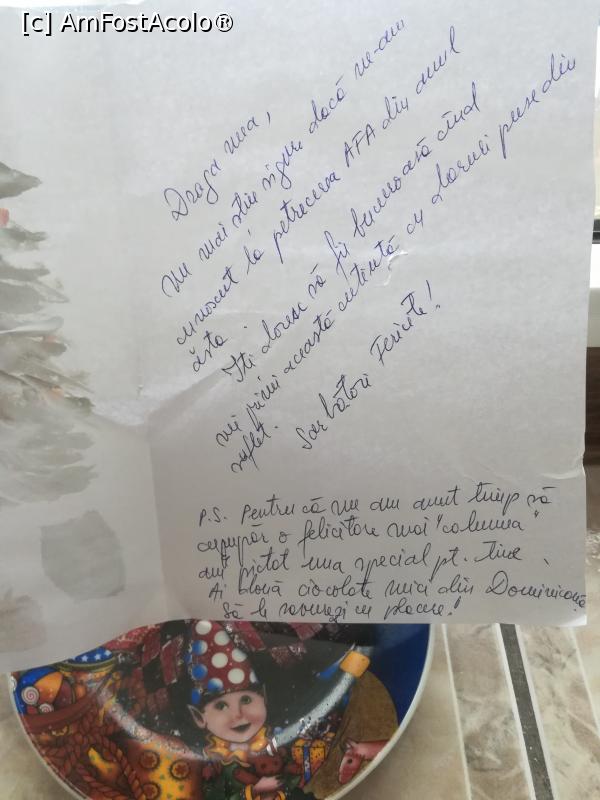 [c] AmFostAcolo®
Draga mea,
Nu mai știu sigur dacă ne-am
cunoscut la petrecerea AFA din anul
ăsta.
Iți doresc să fii bucuroasă când
vei primi această cutiuță cu daruri puse din
suflet.
Sarbători Fericite!
P.S. Pentru că nu am avut timp să
cumpăr o felicitare mai "ca lumea"
am pictat una special pt. tine.
Ai două ciocolate mici din Dominicană
Să le savurezi cu plăcere!